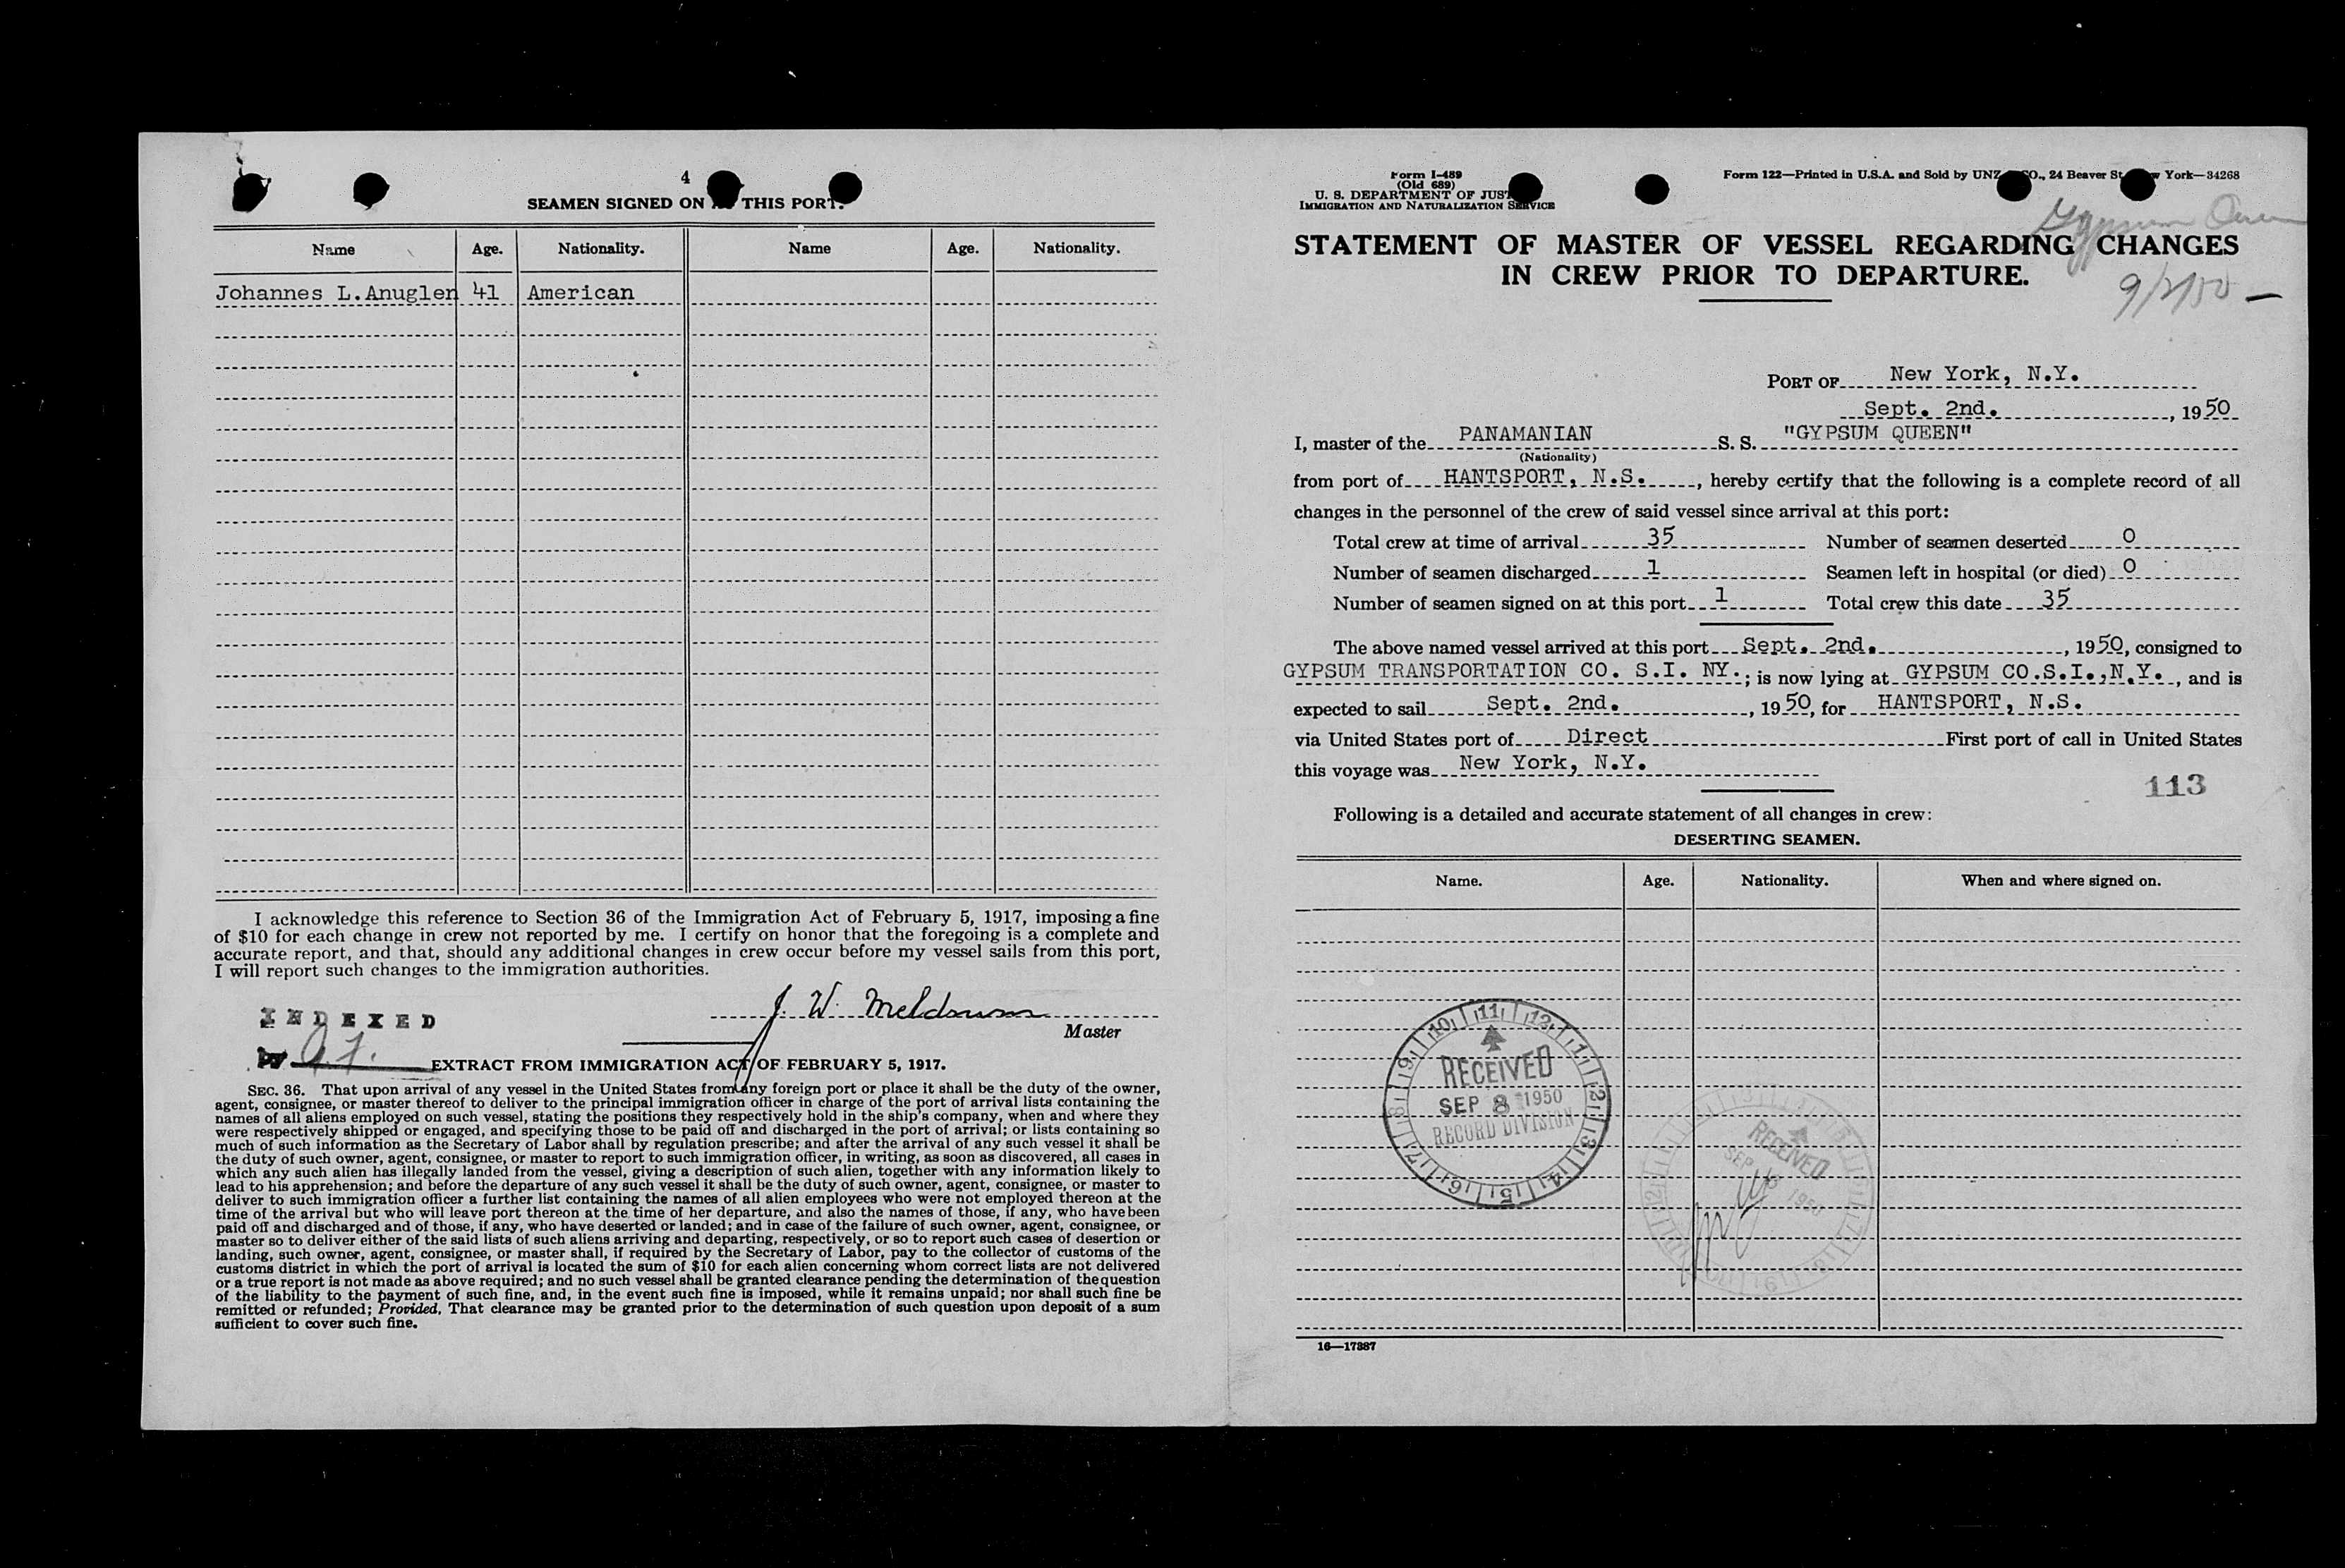 4
SEAMEN SIGNED ON THIS PORT.
Name Age. Nationality. Name Age. Nationality.
Johannes L.Anuglen 41 American
I acknowledge this reference to Section 36 of the Immigration Act of February 5, 1917, imposing a fine
of $10 for each change in crew not reported by me. I certify on honor that the foregoing is a complete and
accurate report, and that, should any additional changes in crew occur before my vessel sails from this port,
I will report such changes to the immigration authorities.
J. W. Meldrum
Master
INDEXED
EXTRACT FROM IMMIGRATION ACT OF FEBRUARY 5, 1917.
SEC. 36. That upon arrival of any vessel in the United States from any foreign port or place it shall be the duty of the owner,
agent, consignee, or master thereof to deliver to the principal immigration officer in charge of the port of arrival lists containing the
names of all aliens employed on such vessel, stating the positions they respectively hold in the ship's company, when and where they
were respectively shipped or engaged, and specifying those to be paid off and discharged in the port of arrival; or lists containing so
much of such information as the Secretary of Labor shall by regulation prescribe; and after the arrival of any such vessel it shall be
the duty of such owner, agent, consignee, or master to report to such immigration officer, in writing, as soon as discovered, all cases in
which any such alien has illegally landed from the vessel, giving a description of such alien, together with any information likely to
lead to his apprehension; and before the departure of any such vessel it shall be the duty of such owner, agent, consignee, or master to
deliver to such immigration officer a further list containing the names of all alien employees who were not employed thereon at the
time of the arrival but who will leave port thereon at the time of her departure, and also the names of those, if any, who have been
paid off and discharged and of those, if any, who have deserted or landed; and in case of the failure of such owner, agent, consignee, or
master so to deliver either of the said lists of such aliens arriving and departing, respectively, or so to report such cases of desertion or
landing, such owner, agent, consignee, or master shall, if required by the Secretary of Labor, pay to the collector of customs of the
customs district in which the port of arrival is located the sum of $10 for each alien concerning whom correct lists are not delivered
or a true report is not made as above required; and no such vessel shall be granted clearance pending the determination of the question
of the liability to the payment of such fine, and, in the event such fine is imposed, while it remains unpaid; nor shall such fine be
remitted or refunded; Provided, That clearance may be granted prior to the determination of such question upon deposit of a sum
sufficient to cover such fine.
Form I-489
(Old 689)
U. S. DEPARTMENT OF JUS
IMMIGRATION AND NATURALIZATION SERVICE
Form 122—Printed in U.S.A. and Sold by UNZ CO., 24 Beaver St. York—34268
Gypsum Queen
9/2/50 —
STATEMENT OF MASTER OF VESSEL REGARDING CHANGES
IN CREW PRIOR TO DEPARTURE.
PORT OF New York, N.Y.
Sept. 2nd., 1950
I, master of the PANAMANIAN S. S. "GYPSUM QUEEN"
(Nationality)
from port of HANTSPORT, N.S., hereby certify that the following is a complete record of all
changes in the personnel of the crew of said vessel since arrival at this port:
Total crew at time of arrival 35 Number of seamen deserted 0
Number of seamen discharged 1 Seamen left in hospital (or died) 0
Number of seamen signed on at this port 1 Total crew this date 35
The above named vessel arrived at this port Sept. 2nd., 1950, consigned to
GYPSUM TRANSPORTATION CO. S.I. NY.; is now lying at GYPSUM CO.S.I.,N.Y., and is
expected to sail Sept. 2nd., 1950, for HANTSPORT, N.S.
via United States port of Direct First port of call in United States
this voyage was New York, N.Y.
113
Following is a detailed and accurate statement of all changes in crew:
DESERTING SEAMEN.
Name. Age. Nationality. When and where signed on.
RECEIVED
SEP 8 1950
RECORD DIVISION
RECEIVED
SEP 1950
16—17387